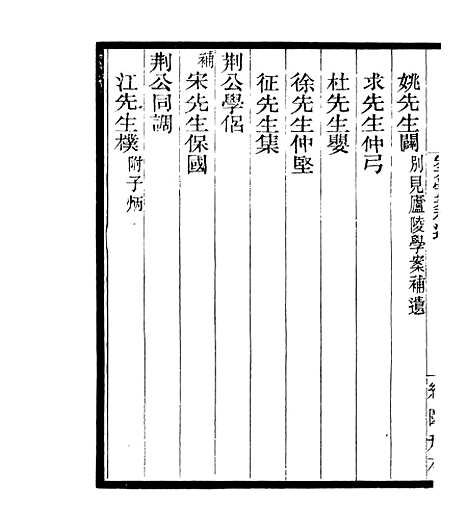 姚先生闢 別見廬陵學案補遺
求先生仲弓
杜先生嬰
徐先生仲堅
征先生集
荆公學侶
補 宋先生保國
荆公同調
江先生樸 附子炳